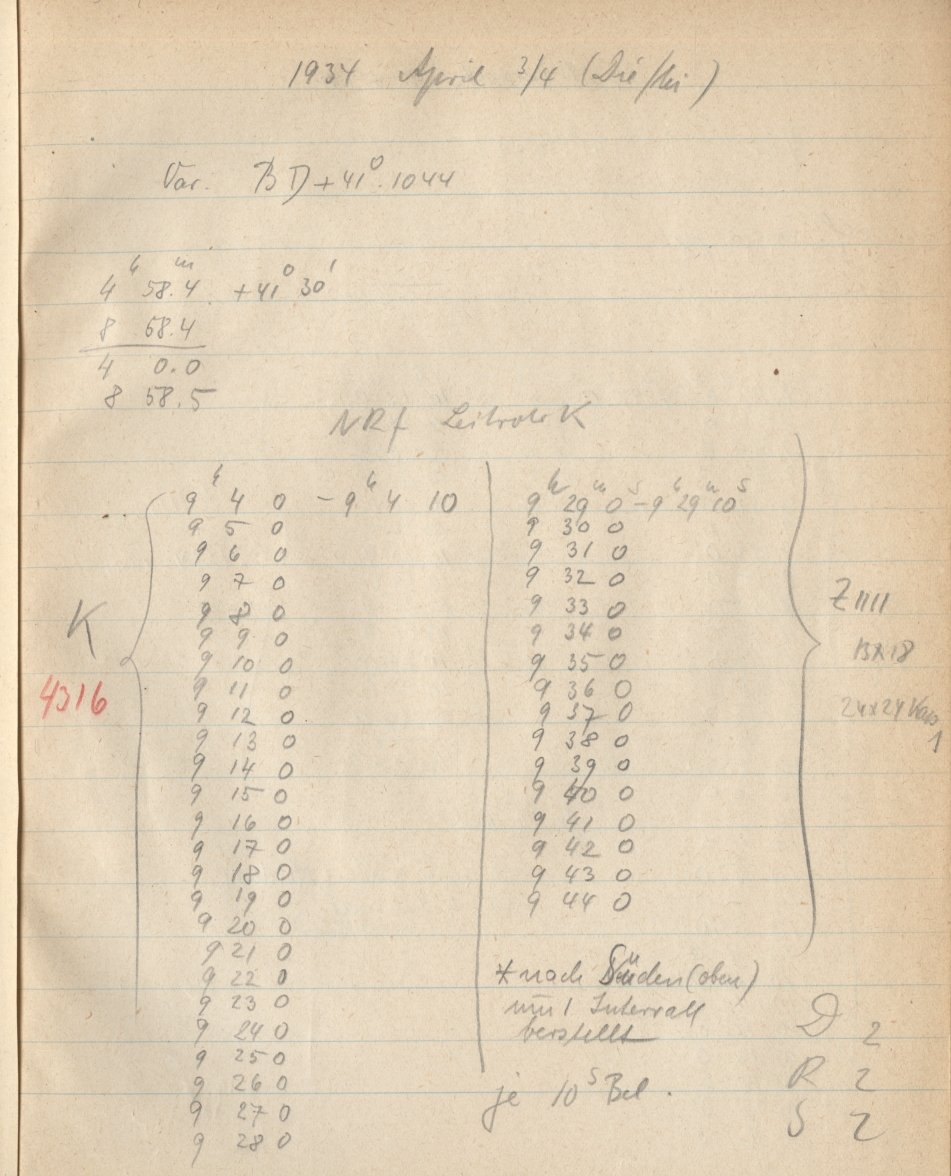 1934 April 3/4 (Die/Mi)
Var. BD+41°.1044
4h 58m.4 +41° 30'
8 58.4
4 0.0
8 58.5
NRf Leitrohr K
K
4316
9h 4 0 - 9h 4 10
9 5 0
9 6 0
9 7 0
9 8 0
9 9 0
9 10 0
9 11 0
9 12 0
9 13 0
9 14 0
9 15 0
9 16 0
9 17 0
9 18 0
9 19 0
9 20 0
9 21 0
9 22 0
9 23 0
9 24 0
9 25 0
9 26 0
9 27 0
9 28 0
9h 29m 0s - 9h 29m 10s
9 30 0
9 31 0
9 32 0
9 33 0
9 34 0
9 35 0
9 36 0
9 37 0
9 38 0
9 39 0
9 40 0
9 41 0
9 42 0
9 43 0
9 44 0
Z 1111
13x18
24x24
1
* nach Süden (oben)
um 1 Intervall
verstellt
je 10s Bel.
D 2
R 2
S 2